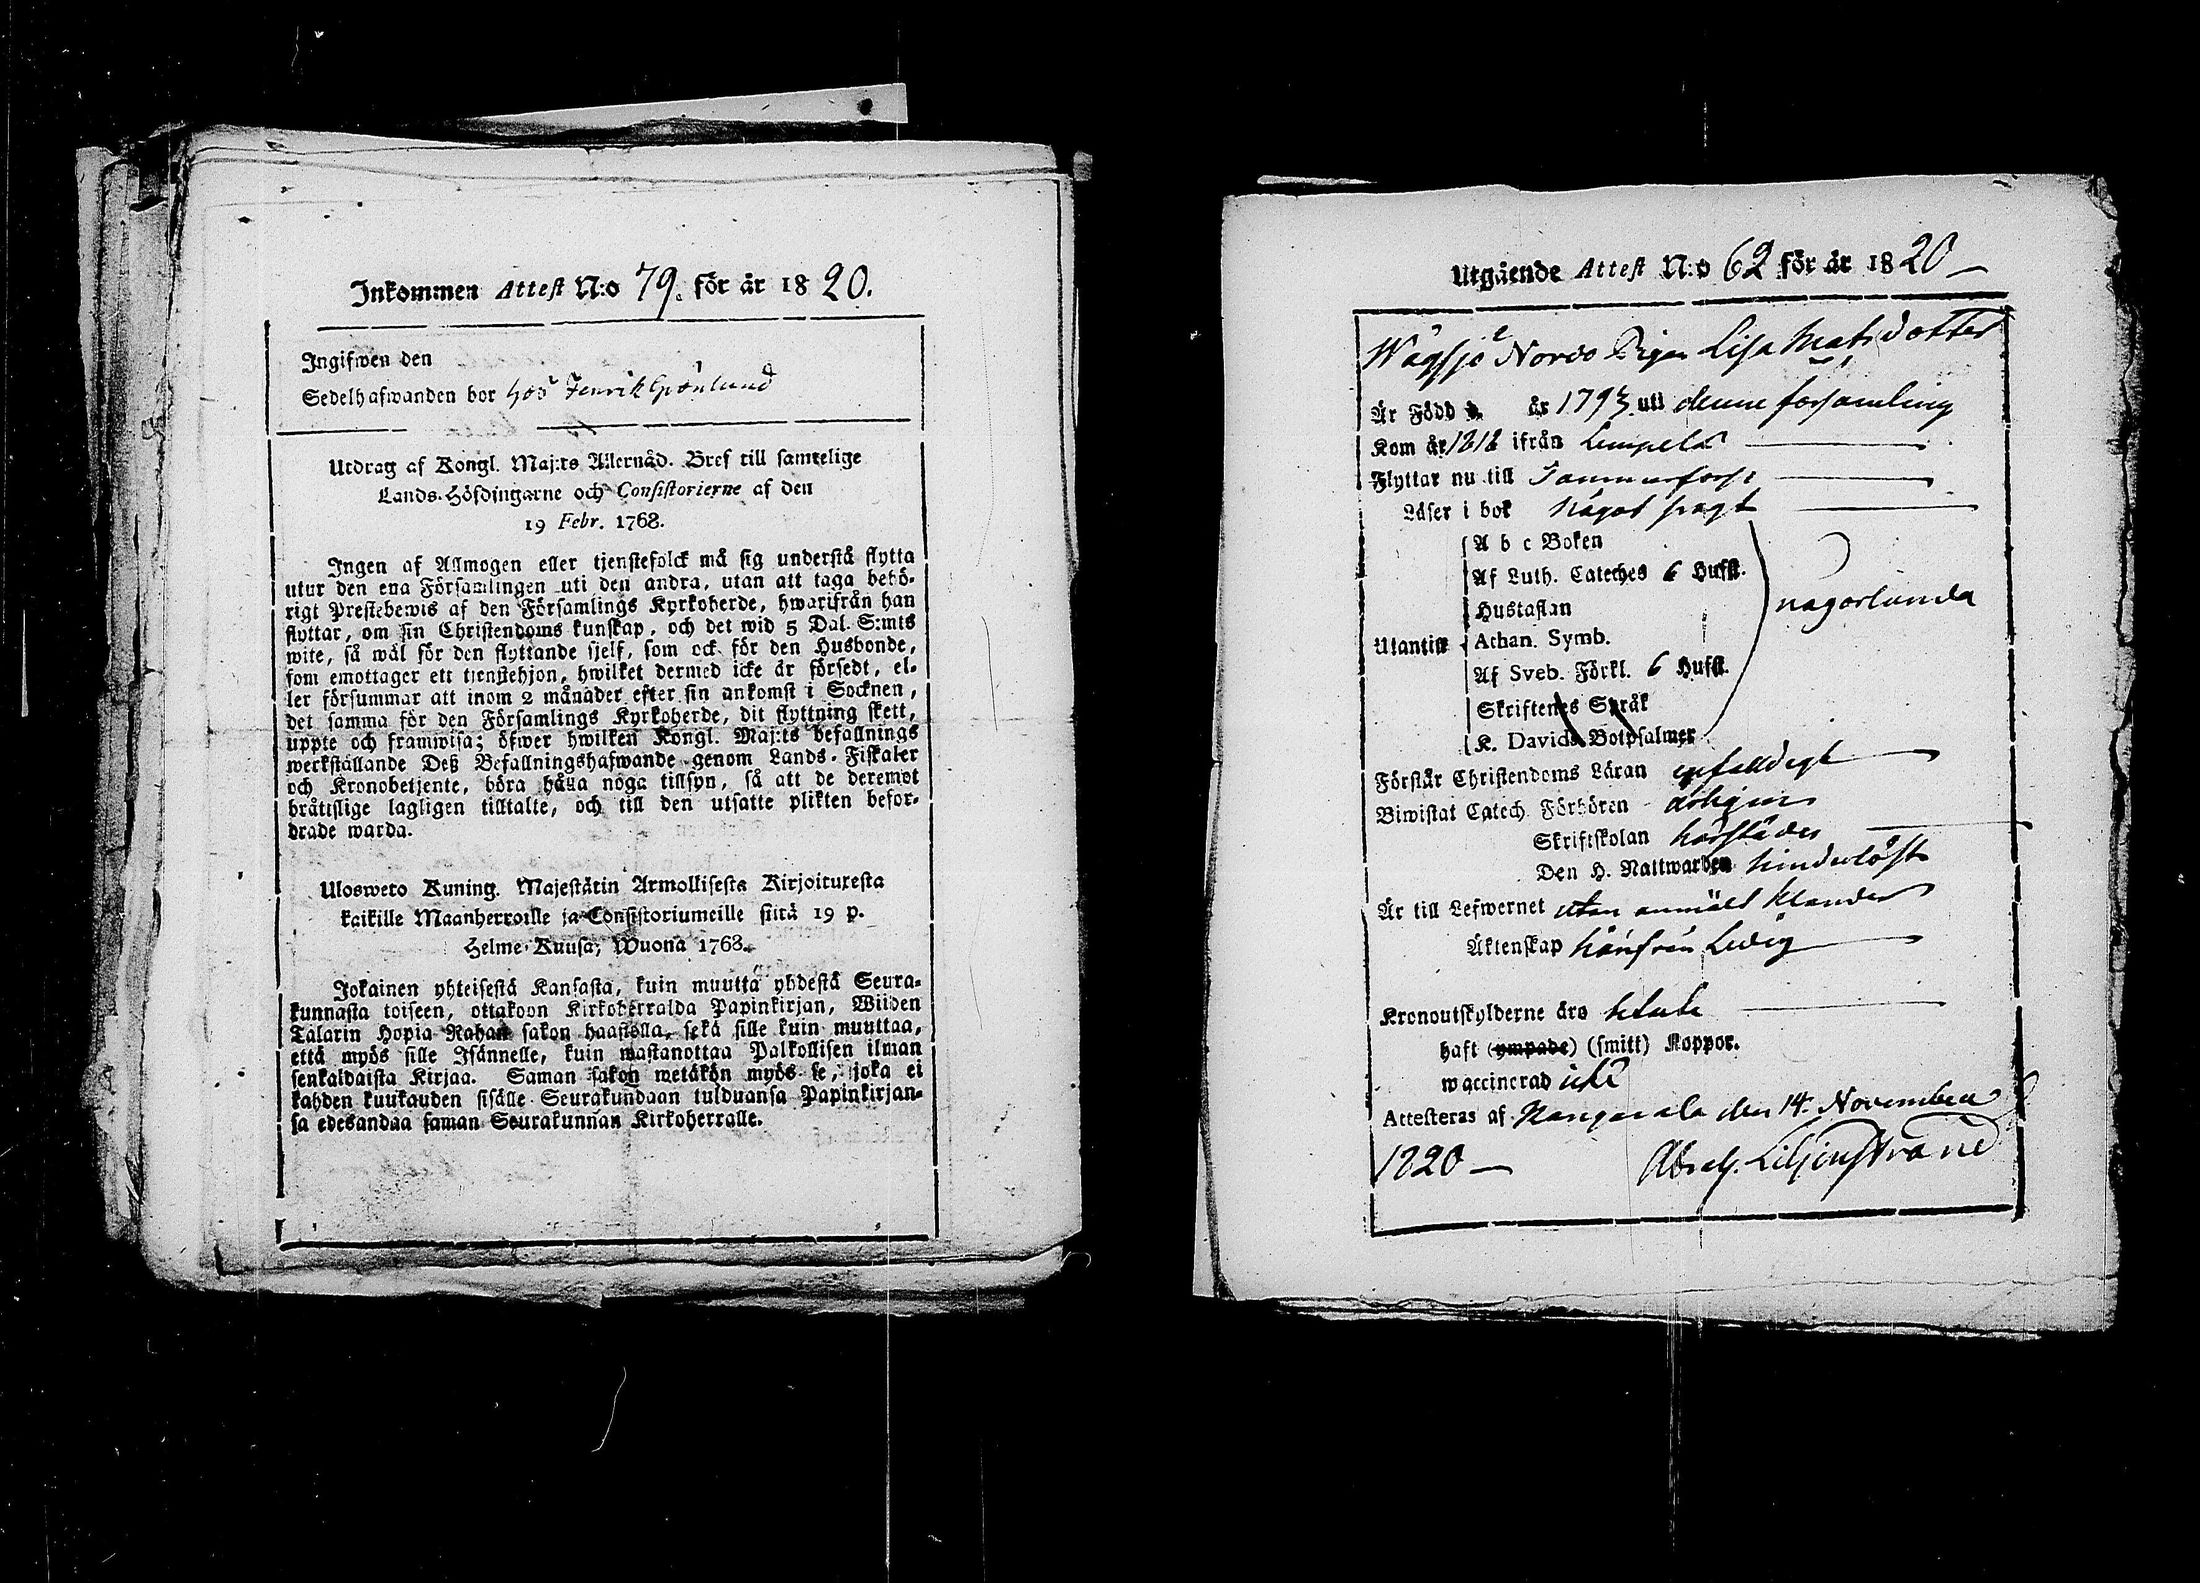 Inkommen Attest N:o 79. för år 1820.
Ingifwen den
Sedelhafwanden bor hos Henrik Grönlund
Utdrag af Kongl. Maj:ts Allernåd. Bref till samtelige
Lands-Höfdingarne och Consistorierne af den
19 Febr. 1768.
Ingen af Allmogen eller tjenstefolck må sig understå flytta
utur den ena Församlingen uti den andra, utan att taga behö-
rigt Prestebewis af den Församlings Kyrkoherde, hwarifrån han
flyttar, om sin Christendoms kunskap, och det wid 5 Dal. S:mts
wite, så wäl för den flyttande sjelf, som ock för den Husbonde,
som emottager ett tjenstehjon, hwilket dermed icke är försedt, el-
ler försummar att inom 2 månader efter sin ankomst i Socknen,
det samma för den Församlings Kyrkoherde, dit flyttning skett,
uppte och framwisa; öfwer hwilken Kongl. Maj:ts befallnings
werkställande Deß Befallningshafwande genom Lands-Fiskaler
och Kronobetjente, böra hålla noga tillsyn, så att de deremot
bråttslige lagligen tilltalte, och till den utsatte plikten befor-
drade warda.
Ulosweto Kuning. Majestätin Armollisesta Kirjoituresta
kaikille Maanherroille ja Consistoriumeille siitä 19 p.
Helme-Kuusa, Wuona 1768.
Jokainen yhteisestä Kansasta, kuin muuttä yhdestä Seura-
kunnasta toiseen, ottakoon Kirkoherralda Papinkirjan, Wiiden
Talarin Hopia Rahan sakon haastolla, sekä sille kuin muuttaa,
että myös sille Isännelle, kuin wastanottaa Palkollisen ilman
senkaldaista Kirjaa. Saman sakon wetäkön myös se, joka ei
kahden kuukauden sisälle Seurakundaan tulduansa Papinkirjan-
sa edesandaa saman Seurakunnan Kirkoherralle.
Utgående Attest N:o 62 för år 1820
Wägsjö Nordo Pigan Lisa Matsdotter
Är Född år 1793 uti denne församling
Kom år 1818 ifrån Lempelä
Flyttar nu till Tammerfors
Läser i bok något swagt
A b c Boken
Af Luth. Cateches 6 Hufst.
Hustaflan
Utantill Athan. Symb. någorlunda
Af Sveb. Förkl. 6 Hufst.
Skriftenes Språk
K. Davids Botpsalmer
Förstår Christendoms Läran enfalldigt
Biwistat Catech. Förhören årligen
Skriftskolan härstädes
Den H. Nattwarden hinderlöst
Är till Lefwernet utan anmält klander
Äktenskap härifrån Ledig
Kronoutskylderne äro betalte
haft (ympade) (smitt) Koppor.
waccinerad icke
Attesteras af Kangasala den 14 November
1820 Abrah. Liljenstrand